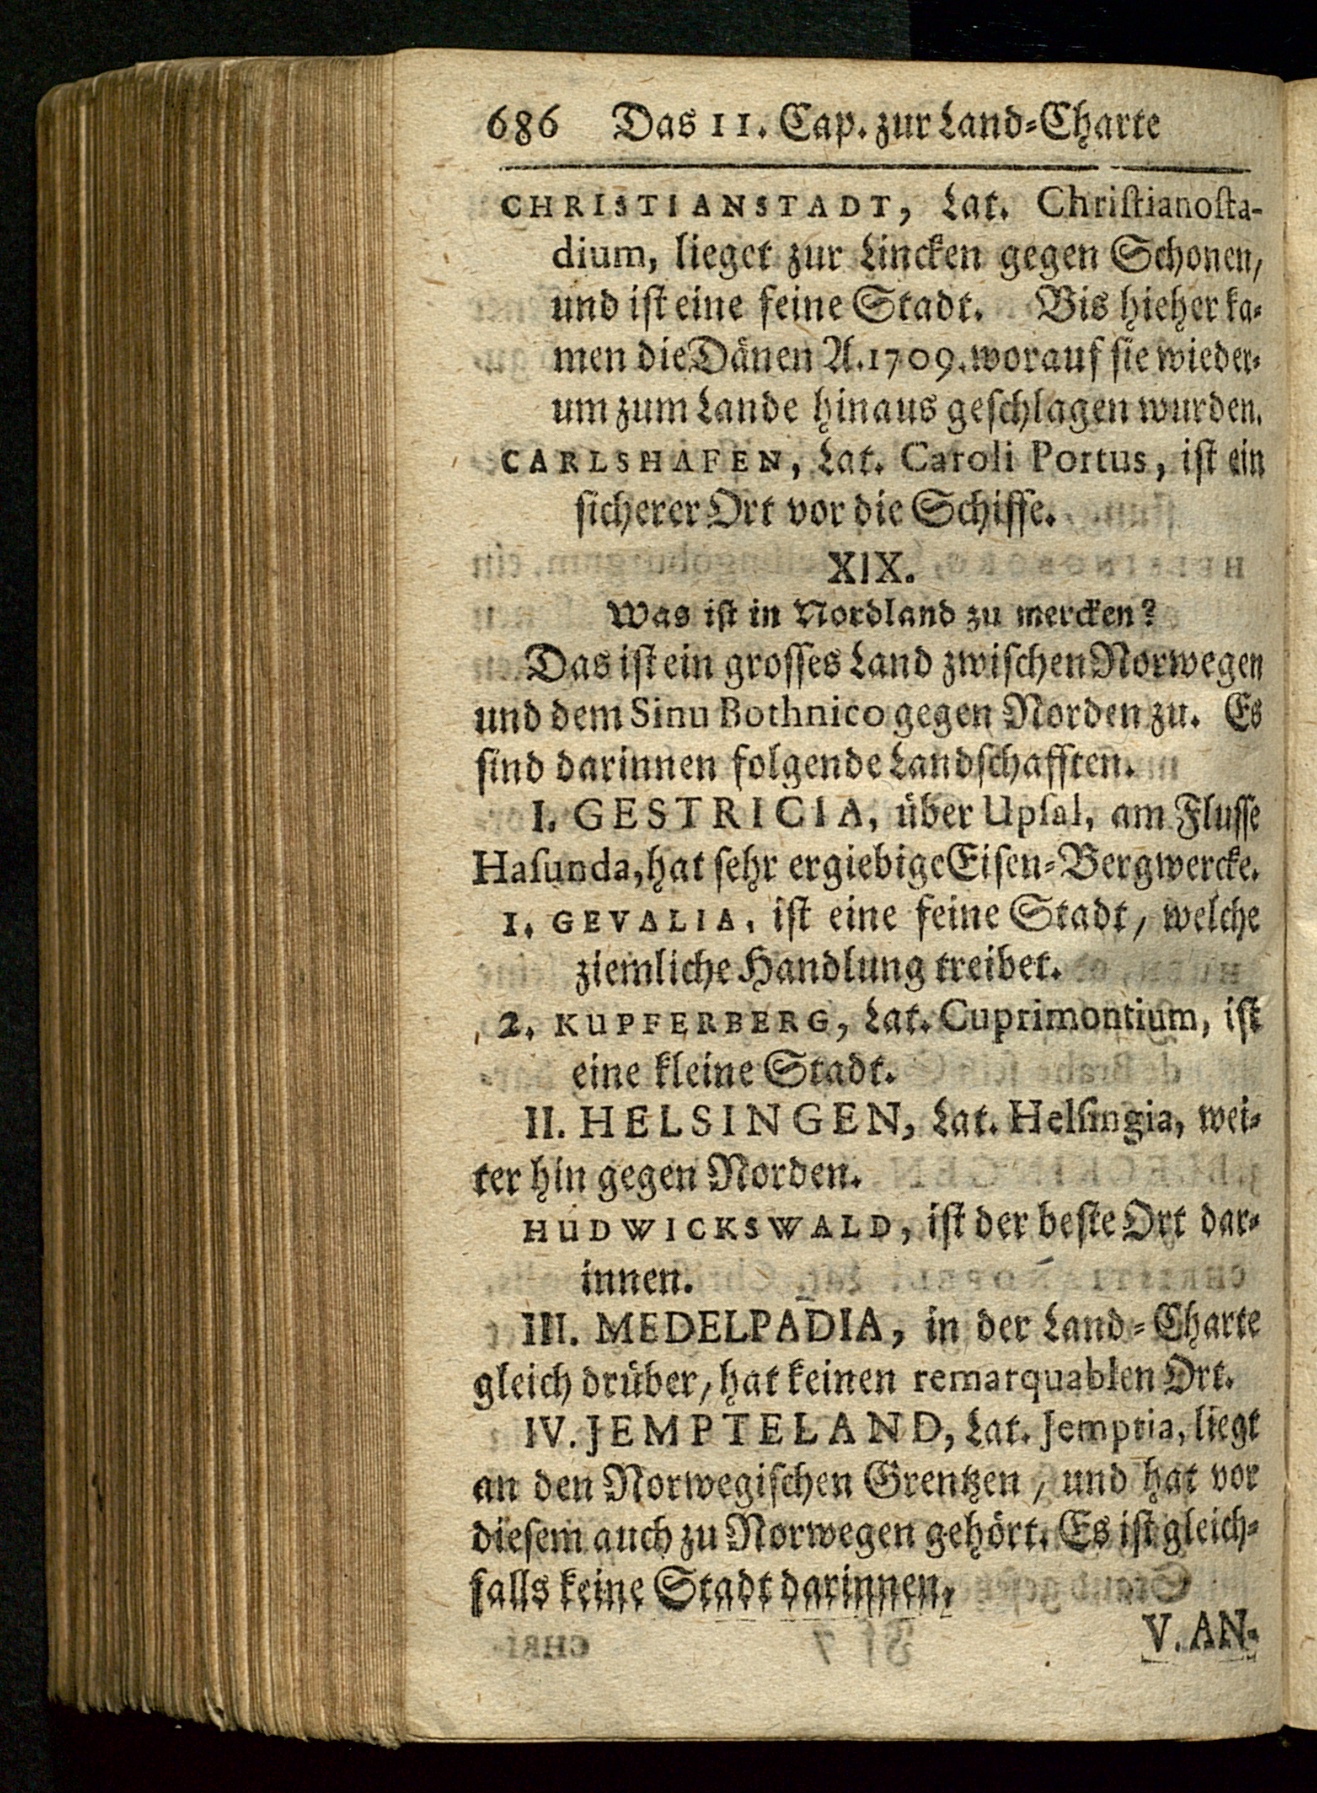 686 Das II. Cap. zur Land-Charte
CHRISTIANSTADT, Lat. Christianosta-
dium, lieget zur Lincken gegen Schonen,
und ist eine feine Stadt. Bis hieher ka-
men die Dänen A. 1709. worauf sie wieder-
um zum Lande hinaus geschlagen wurden.
CARLSHAFEN, Lat. Caroli Portus, ist ein
sicherer Ort vor die Schiffe.
XIX.
Was ist in Nordland zu mercken?
Das ist ein grosses Land zwischen Norwegen
und dem Sinu Bothnico gegen Norden zu. Es
sind darinnen folgende Landschafften.
I. GESTRICIA, über Upsal, am Flusse
Hasunda, hat sehr ergiebige Eisen-Bergwercke.
1. GEVALIA, ist eine feine Stadt, welche
ziemliche Handlung treibet.
2. KUPFERBERG, Lat. Cuprimontium, ist
eine kleine Stadt.
II. HELSINGEN, Lat. Helsingia, wei-
ter hin gegen Norden.
HUDWICKSWALD, ist der beste Ort dar-
innen.
III. MEDELPADIA, in der Land-Charte
gleich drüber, hat keinen remarquablen Ort.
IV. JEMPTELAND, Lat. Jemptia, liegt
an den Norwegischen Grentzen, und hat vor
diesem auch zu Norwegen gehört. Es ist gleich-
falls keine Stadt darinnen.
V. AN-